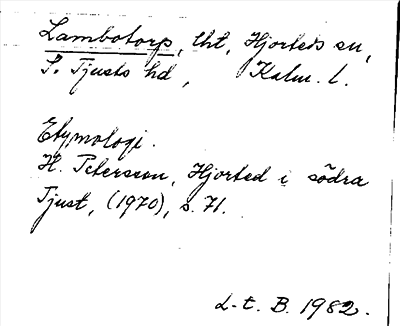 Lambotorp, lht, Hjorteds sn,
S. Tjusts hd, Kalm. l.
Etymologi.
H. Petersson, Hjorted i södra
Tjust, (1970), s. 71.
L-t. B. 1982.